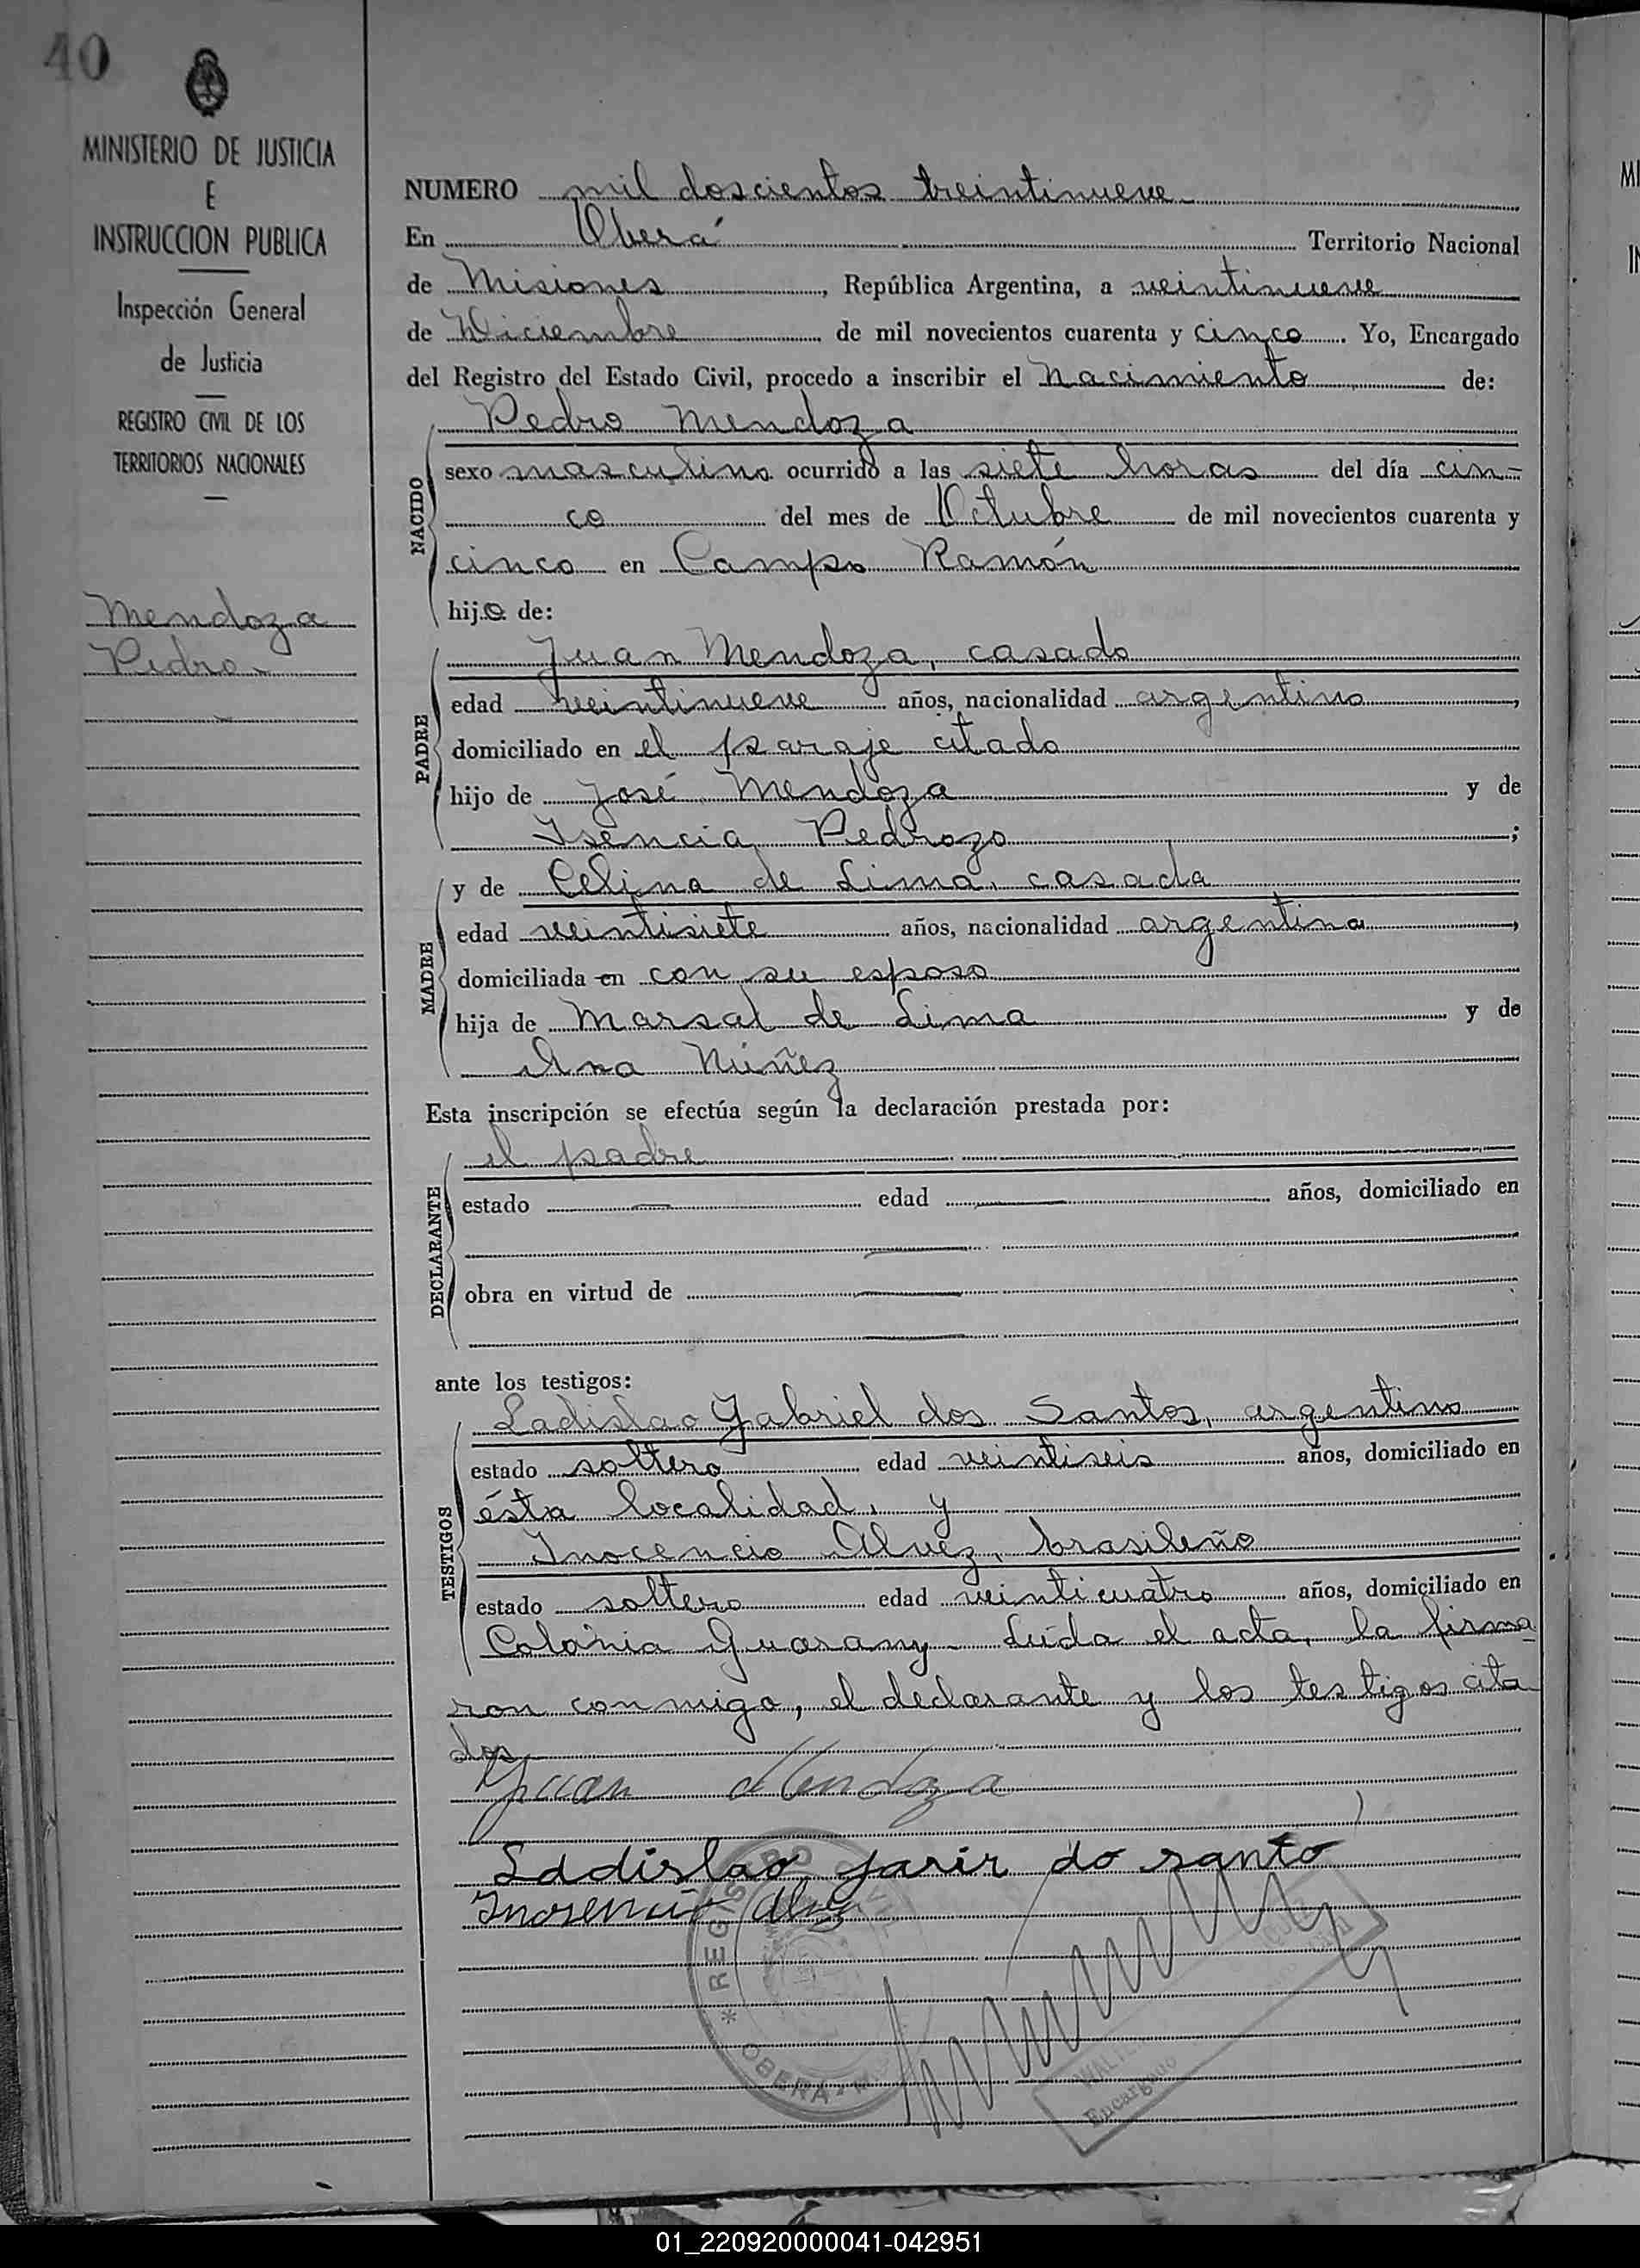 40
MINISTERIO DE JUSTICIA
E
INSTRUCCION PUBLICA
Inspección General
de Justicia
REGISTRO CIVIL DE LOS
TERRITORIOS NACIONALES
Mendoza
Pedro
NUMERO mil doscientos treintinueve
En Oberá Territorio Nacional
de Misiones, República Argentina, a veintinueve
de Diciembre de mil novecientos cuarenta y cinco. Yo, Encargado
del Registro del Estado Civil, procedo a inscribir el Nacimiento de:
NACIDO
Pedro Mendoza
sexo masculino ocurrido a las siete horas del día cin-
co del mes de Octubre de mil novecientos cuarenta y
cinco en Campo Ramón
hijo de:
PADRE
Juan Mendoza, casado
edad veintinueve años, nacionalidad argentino,
domiciliado en el paraje citado
hijo de José Mendoza y de
Isencia Pedrozo;
MADRE
y de Celina de Lima, casada
edad veintisiete años, nacionalidad argentina,
domiciliada en con su esposo
hija de Marsal de Lima y de
Ana Núñez
Esta inscripción se efectúa según la declaración prestada por:
DECLARANTE
el padre
estado — edad — años, domiciliado en
—
obra en virtud de —
—
ante los testigos:
TESTIGOS
Ladislao Gabriel dos Santos, argentino
estado soltero edad veintiseis años, domiciliado en
ésta localidad, y
Inocencio Alvez, brasileño
estado soltero edad veinticuatro años, domiciliado en
Colonia Guarany - Leída el acta, la firma-
ron conmigo, el declarante y los testigos cita
dos
Juan Mendoza
Ladislao do santo
Alvez
* REGISTRO
OBERA
Encargado
01_220920000041-042951